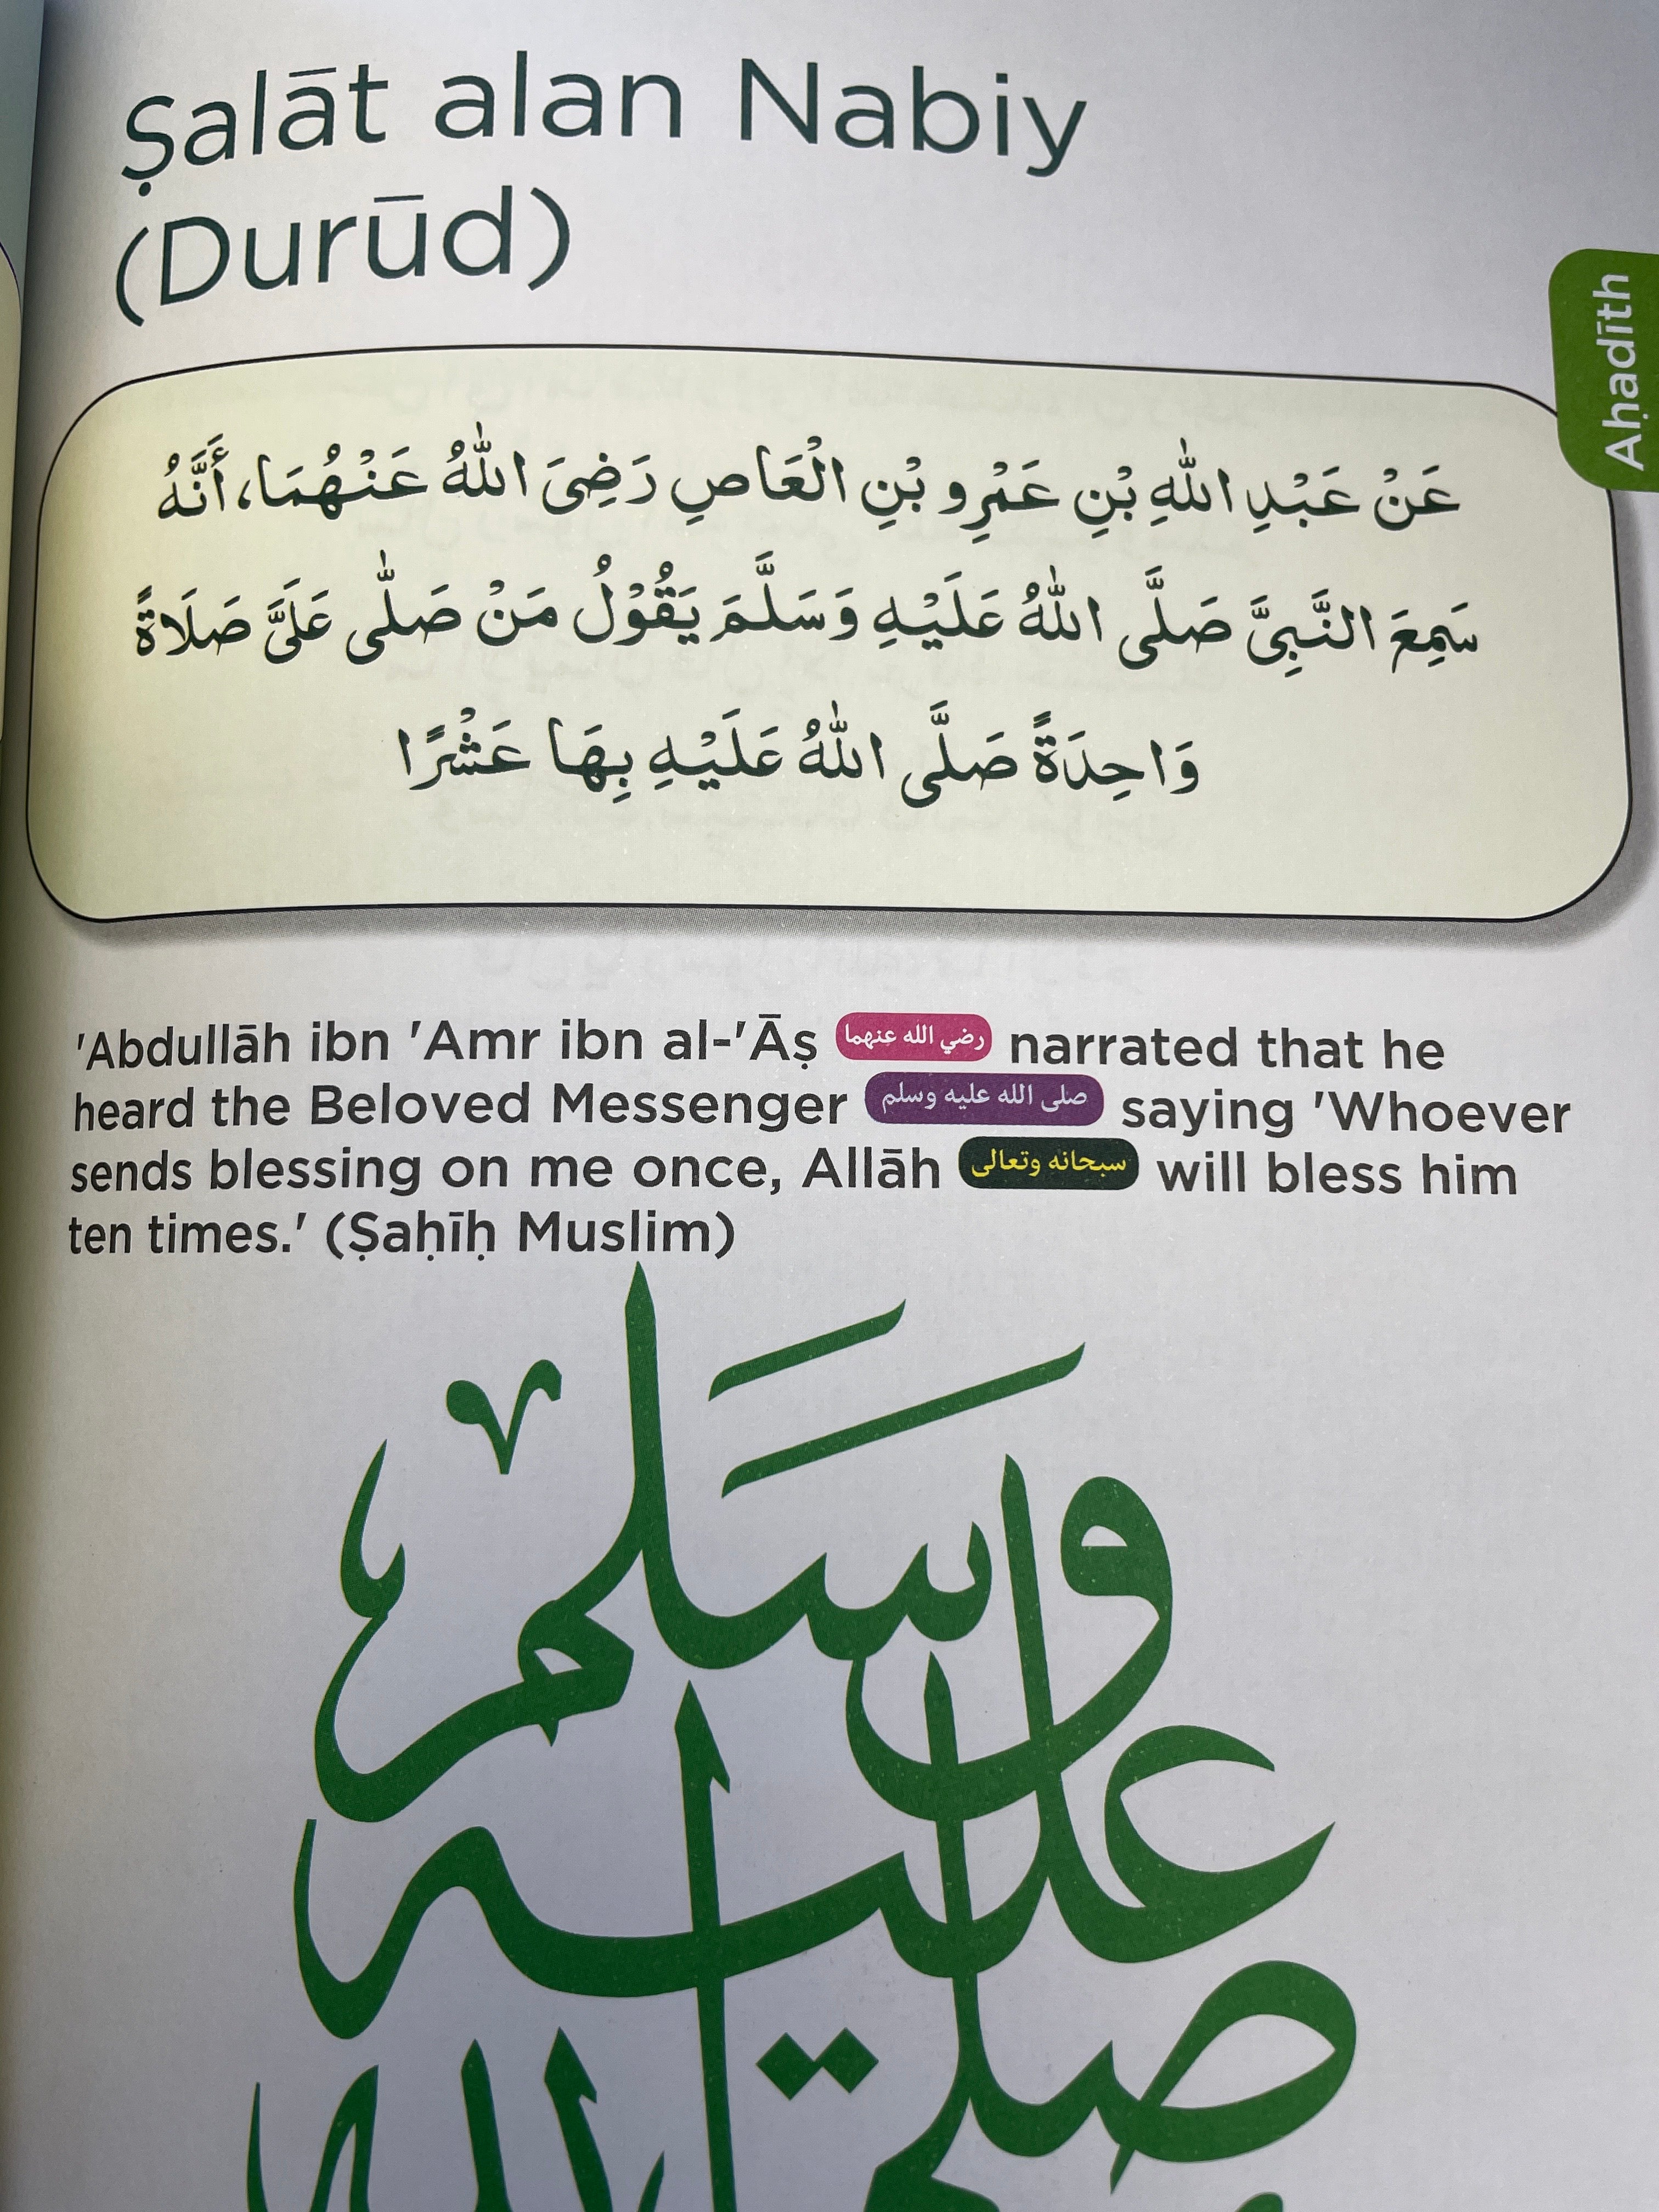 Ṣalāt alan Nabiy
(Durūd)
Aḥadīth
عَنْ عَبْدِ اللّٰهِ بْنِ عَمْرِو بْنِ الْعَاصِ رَضِىَ اللّٰهُ عَنْهُمَا، أَنَّهُ
سَمِعَ النَّبِىَّ صَلَّى اللّٰهُ عَلَيْهِ وَسَلَّمَ يَقُوْلُ مَنْ صَلّٰى عَلَىَّ صَلَاةً
وَاحِدَةً صَلَّى اللّٰهُ عَلَيْهِ بِهَا عَشْرًا
'Abdullāh ibn 'Amr ibn al-'Āṣ رضي الله عنهما narrated that he
heard the Beloved Messenger صلى الله عليه وسلم saying 'Whoever
sends blessing on me once, Allāh سبحانه وتعالى will bless him
ten times.' (Ṣaḥīḥ Muslim)
وسلم
عليه
صلى
الله